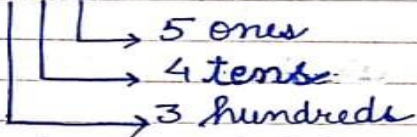 5 ones
4 tens
3 hundreds